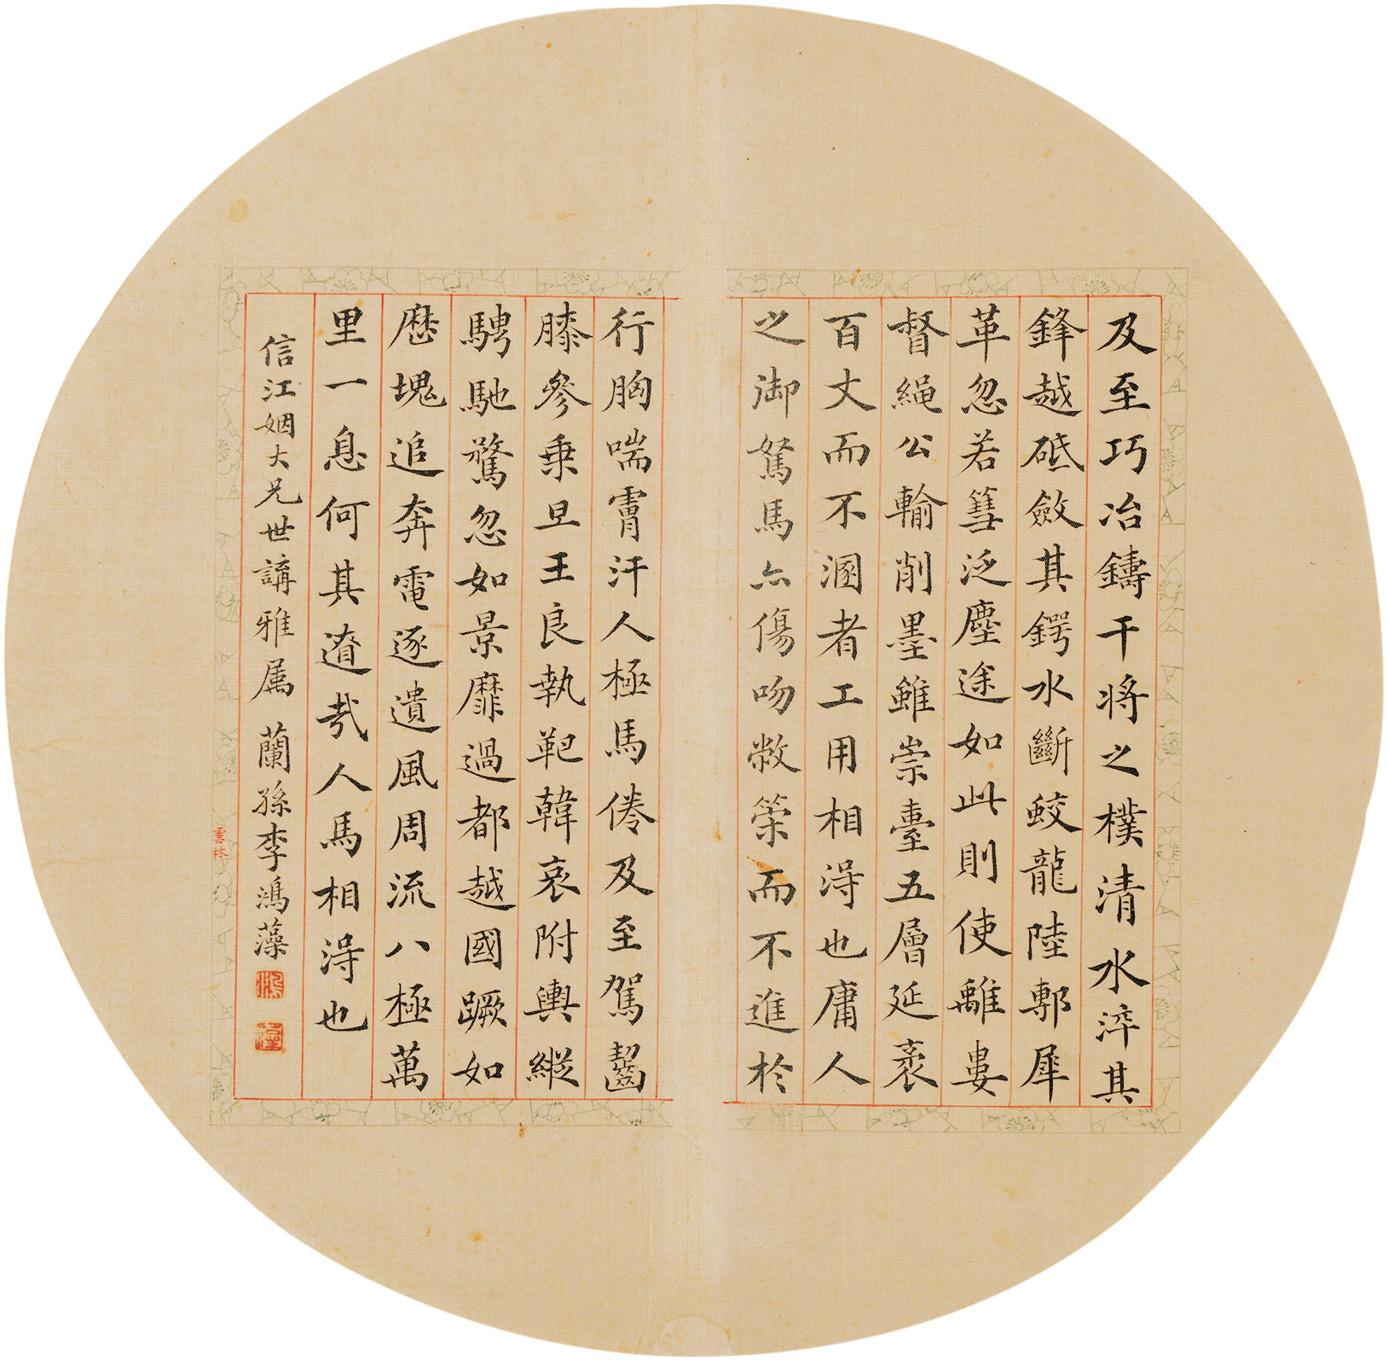 及至巧冶鑄干将之樸清水淬其
鋒越砥斂其鍔水斷蛟龍陸剸犀
革忽若篲泛塵途如此則使離婁
督繩公輸削墨雖崇臺五層延袤
百丈而不溷者工用相淂也庸人
之御駑馬亦傷吻敝策而不進於
行胸喘膚汗人極馬倦及至駕齧
膝參乗旦王良執靶韓哀附輿縱
騁馳騖忽如景靡過都越國蹶如
歴塊追奔電逐遺風周流八極萬
里一息何其遼哉人馬相淂也
信江姻大兄世講雅属 蘭孫李鴻藻
雲林